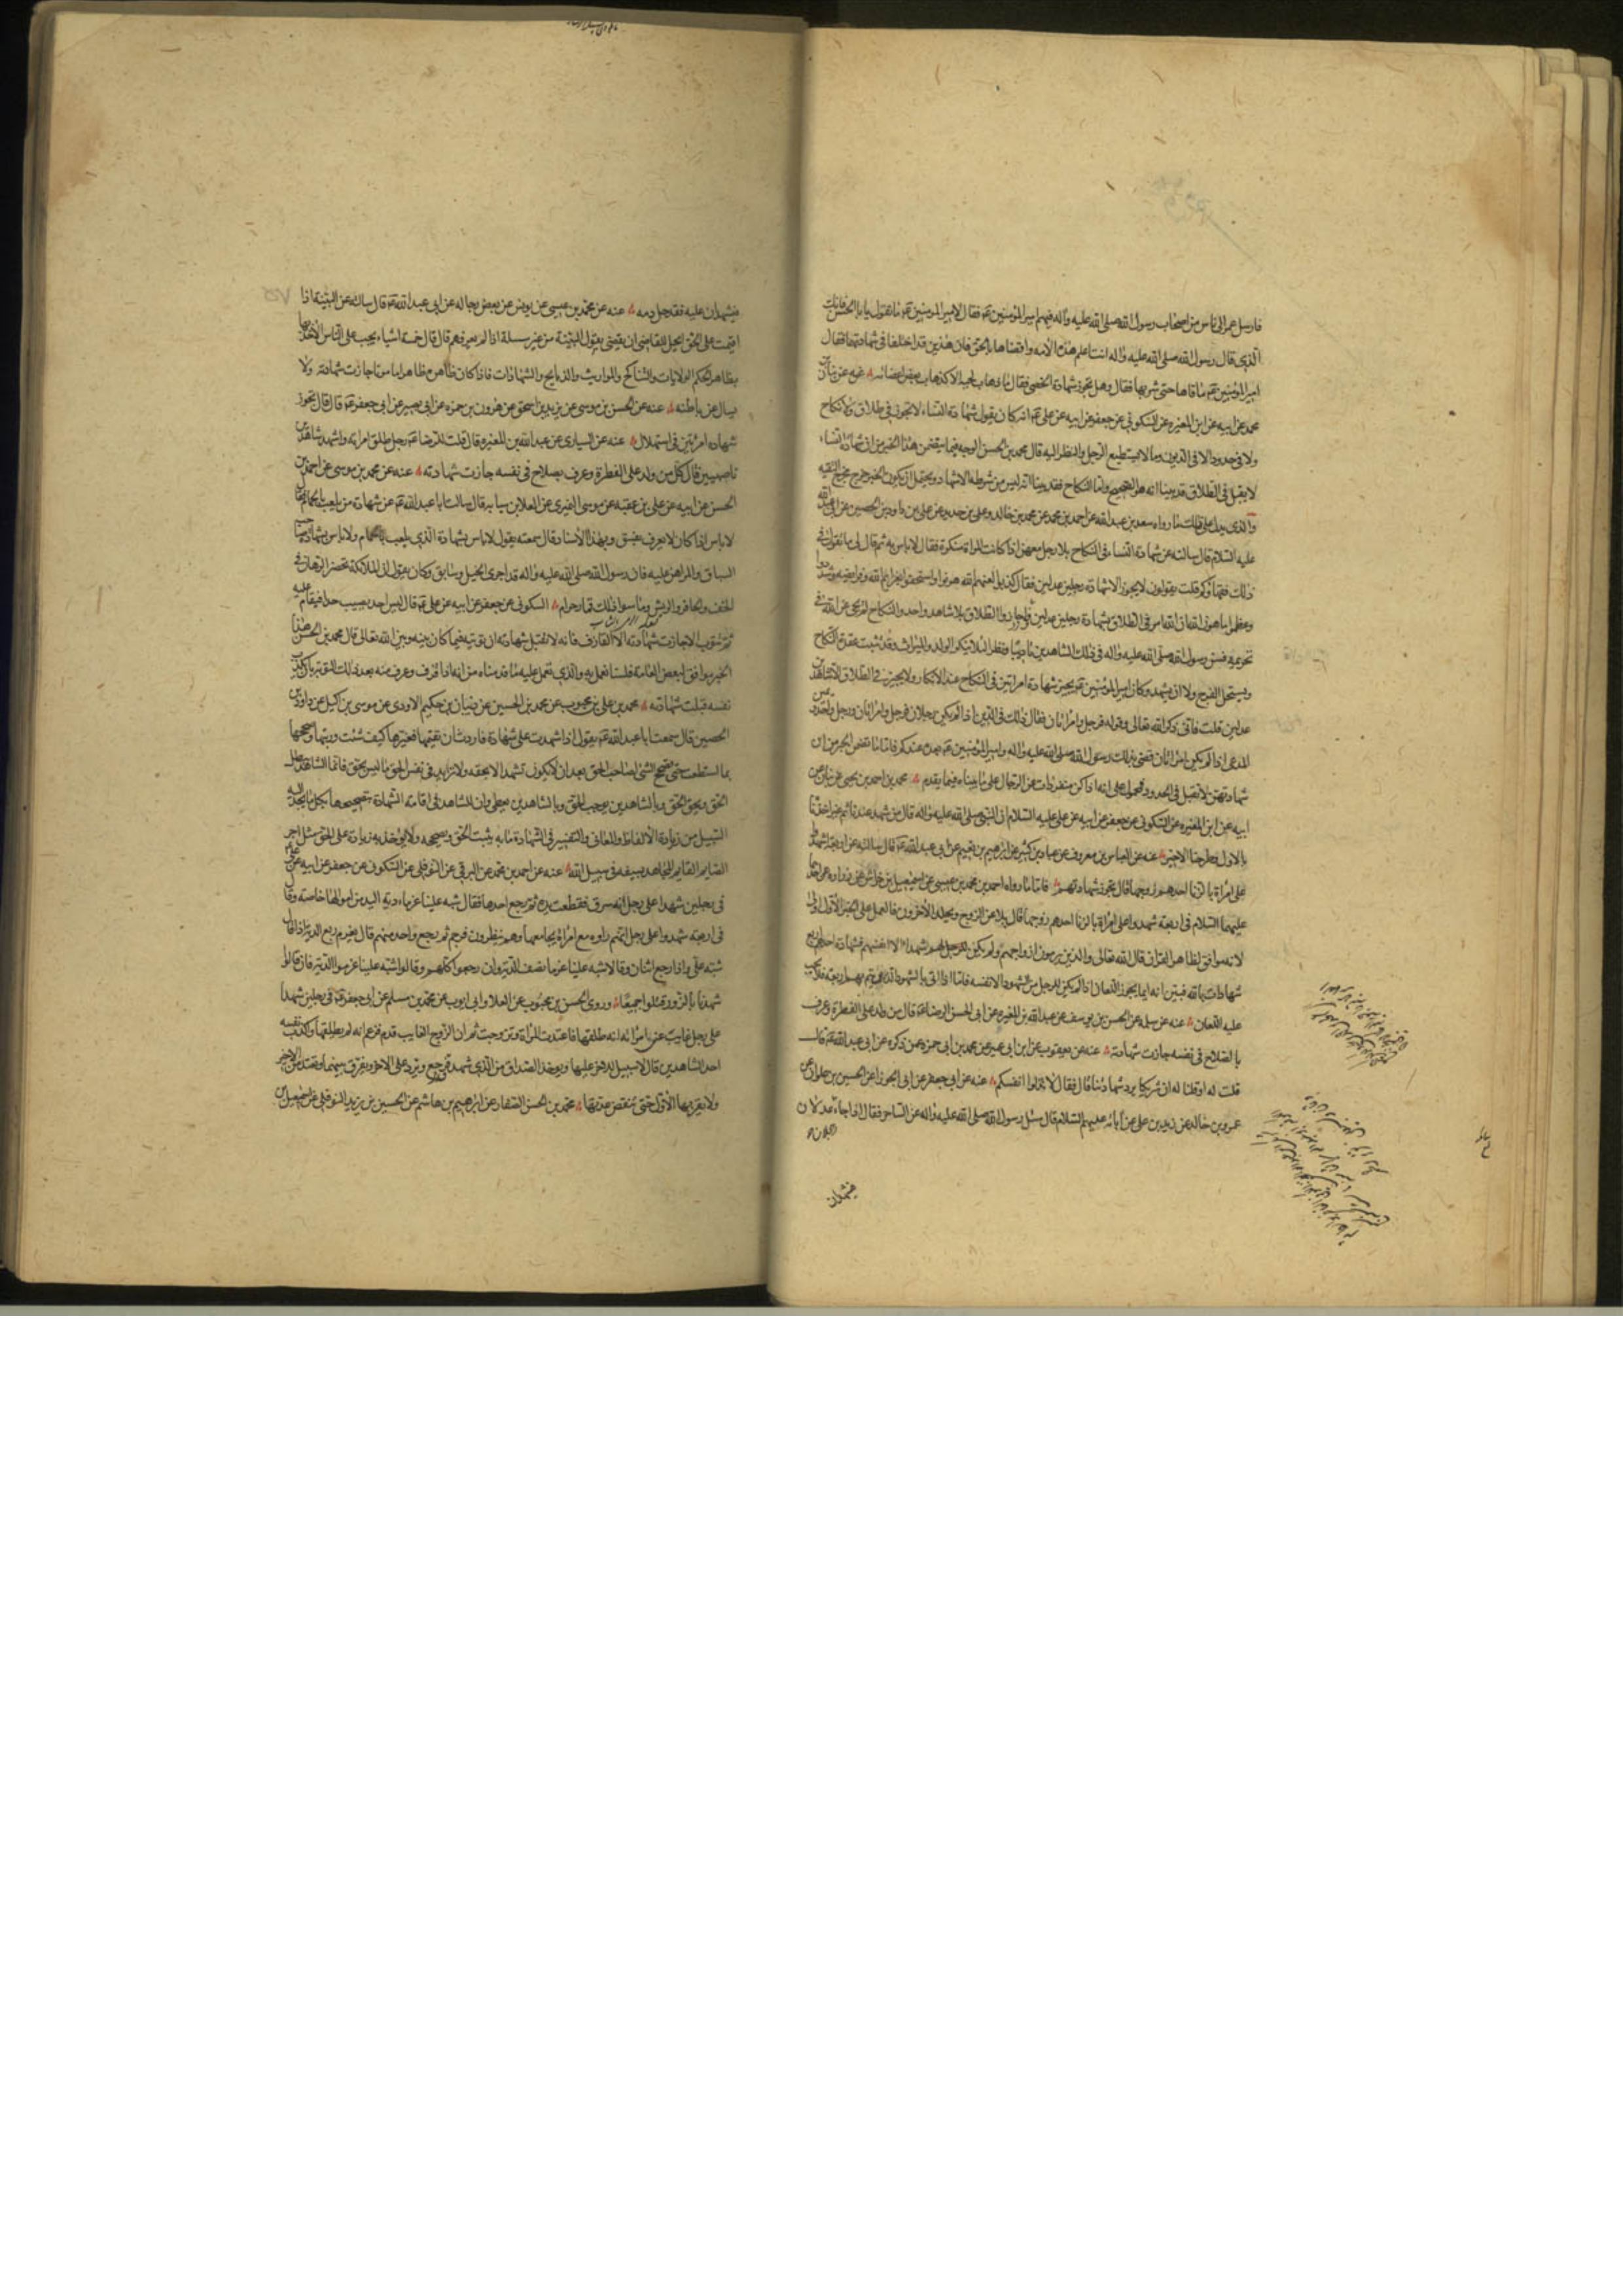 فارسل عمر الى ناس من اصحاب رسول الله صلى الله عليه واله فيهم امير المؤمنين عم فقال لامير المؤمنين عم ما تقول يا ابا الحسن فانك
الذى قال رسول الله صلى الله عليه واله انت اعلم هذه الامة واقضاها بالحق فان هذين قد اختلفا فى شهادتهما فقال
امير المؤمنين عم ما قاءها حتى شربها فقال وهل تجوز شهادة الخصى فقال ما ذهاب لحيته الا كذهاب بعض اعضائه
محمد عن ابيه عن ابن المغيره عن السكونى عن جعفر عن ابيه عن على عم انه كان يقول شهادة النساء لا تجوز فى طلاق ولا نكاح
ولا فى حدود الا فى الديون وما لا يستطيع الرجل النظر اليه قال محمد بن الحسن الوجه فيما يتضمن هذا الخبر من ان شهادة النساء
لا يقبل فى الطلاق قد بينا انه هو الصحيح واما النكاح فقد بينا انه ليس من شرطه الاشهاد ويحتمل ان يكون الخبر خرج مخرج التقيه
والذى يدل على ذلك ما رواه سعد بن عبد الله عن احمد بن محمد عن محمد بن خالد وعلى بن حديد عن على بن داود بن الحصين عن ابى عبد الله
عليه السلام قال سالته عن شهادة النساء فى النكاح بلا رجل معهن اذا كانت المراة منكرة فقال لا باس به ثم قال لى ما يقول فى
ذلك فقهاؤكم قلت يقولون لا يجوز الا شهادة رجلين عدلين فقال كذبوا لعنهم الله هونوا واستخفوا بعزايم الله وفرايضه وشددوا
وعظموا ما هون الله ان الله امر فى الطلاق بشهادة رجلين عدلين فاجازوا الطلاق بلا شاهد واحد والنكاح لم يجئ عن الله فى
تحريمه فسن رسول الله صلى الله عليه واله فى ذلك الشاهدين تاديبا ونظرا لئلا ينكر الولد والميراث وقد ثبتت عقدة النكاح
ويستحل الفرج ولا ان يشهد وكان امير المؤمنين عم يجيز شهادة امراتين فى النكاح عند الانكار ولا يجيز فى الطلاق الا شاهدين
عدلين قلت فانى ذكر الله تعالى وقوله فرجل وامراتان فقال ذلك فى الدين اذا لم يكن رجلان فرجل وامراتان ورجل واحد ويمين
المدعى اذا لم يكن امراتان قضى بذلك رسول الله صلى الله عليه واله وامير المؤمنين عم بعده عندكم فاما ما تضمن الخبر من ان
شهادتهن لا تقبل فى الحدود فمحمول على انه اذا كن منفردات عن الرجال على ما بيناه فيما يقدم محمد بن احمد بن يحيى عن بنان عن
ابيه عن ابن المغيره عن السكونى عن جعفر عن ابيه عن على عليه السلام ان النبى صلى الله عليه واله قال من شهد عندنا ثم غير اخذنا
بالاول وطرحنا الاخير عنه عن العباس بن معروف عن عباد بن كثير عن ابرهيم بن نعيم عن ابى عبد الله عم قال سالته عن اربعة شهدوا
على امراة بالزنا احدهم زوجها قال تجوز شهادتهم فاما ما رواه احمد بن محمد بن عيسى عن اسمعيل بن خراش عن زرارة عن احدهما
عليهما السلام فى اربعة شهدوا على امراة بالزنا احدهم زوجها قال يلاعن الزوج ويجلد الاخرون فالعمل على الخبر الاول اولى
لانه موافق لظاهر القران قال الله تعالى والذين يرمون ازواجهم ولم يكن لهم شهداء الا انفسهم فشهادة احدهم اربع
شهادات بالله فبين انه انما يجوز اللعان اذا لم يكن للرجل من الشهود الا نفسه فاما اذا اتى بالشهود الذين يتم بهم اربعة فلا يجب
عليه اللعان عنه عن سلمه عن الحسن بن يوسف عن عبد الله بن المغيره عن ابى الحسن الرضا عم قال من ولد على الفطرة وعرف
بالصلاح فى نفسه جازت شهادته عنه عن يعقوب عن ابن ابى عمير عن محمد بن ابى حمزه عمن ذكره عن ابى عبد الله عم قال
قلت له او قلنا له ان شريكا يرد شهادتنا قال فقال لا تذلوا انفسكم عنه عن ابى جعفر عن ابى الجوزا عن الحسين بن علوان عن
عمرو بن خالد عن زيد بن على عن ابائه عليهم السلام قال سئل رسول الله صلى الله عليه واله عن الساحر فقال اذا جاء عدلان
فيشهدان
فيشهدان عليه فقد حل دمه عنه عن محمد بن عيسى عن يونس عن بعض رجاله عن ابى عبد الله عم قال سالته عن البينة اذا
اقيمت على الحق ايحل للقاضى ان يقضى بقول البينة من غير مسئلة اذا لم يعرفهم قال قال خمسة اشياء يجب على الناس الاخذ بها
بظاهر الحكم الولايات والتناكح والمواريث والذبايح والشهادات فاذا كان ظاهره ظاهرا مامونا جازت شهادته ولا
يسال عن باطنه عنه عن الحسن بن موسى عن يزيد بن اسحق عن هرون بن حمزه عن ابى بصير عن ابى جعفر عم قال قال تجوز
شهادة امراتين فى استهلال عنه عن السيارى عن عبد الله بن المغيره قال قلت للرضا عم رجل طلق امراته واشهد شاهدين
ناصبيين قال كل من ولد على الفطرة وعرف بصلاح فى نفسه جازت شهادته عنه عن محمد بن موسى عن احمد بن
الحسن عن ابيه عن على بن عقبه عن موسى النميرى عن العلا بن سيابه قال سالت ابا عبد الله عم عن شهادة من يلعب بالحمام فقال
لا باس اذا كان لا يعرف بفسق وبهذا الاسناد قال سمعته يقول لا باس بشهادة الذى يلعب بالحمام ولا باس بشهادة
السباق والمراهن عليه فان رسول الله صلى الله عليه واله قد اجرى الخيل وسابق وكان يقول ان الملائكة تحضر الرهان فى
الخف والحافر والريش وما سوا ذلك قمار حرام السكونى عن جعفر عن ابيه عن على عم قال ليس احد يصيب حدا فيقام عليه
ثم يتوب الا جازت شهادته الا القاذف فانه لا تقبل شهادته ان توبته فيما كان بينه وبين الله تعالى قال محمد بن الحسن هذا
الخبر موافق لبعض العامة فلسنا نعمل به والذى نعمل عليه ما قدمناه من انه اذا قذف وعرف منه بعد ذلك التوبة باكذاب
نفسه قبلت شهادته محمد بن على بن محبوب عن محمد بن الحسين عن ذبيان بن حكيم الاودى عن موسى بن اكيل عن داود بن
الحصين قال سمعت ابا عبد الله عم يقول اذا شهدت على شهادة فاردت ان تقيمها فغيرها كيف شئت ورتبها وصححها
بما استطعت حتى يصح الشئ لصاحب الحق بعد ان لا يكون تشهد الا بحقه ولا تزايد فى نفس الحق ما ليس بحق فانما الشاهد يبطل
الحق ويحق الحق وبالشاهدين يوجب الحق وبالشاهدين يعطى وان للشاهد فى اقامة الشهادة بتصحيحها بكل ما يجد اليه
السبيل من زيادة الالفاظ والمعانى والتفسير فى الشهادة ما به يثبت الحق ويصححه ولا يؤخذ به زيادة على الحق مثل اجر
الصايم القايم المجاهد بسيفه فى سبيل الله عنه عن احمد بن محمد عن البرقى عن النوفلى عن السكونى عن جعفر عن ابيه عن على
فى رجلين شهدا على رجل انه سرق فقطعت يده ثم رجع احدهما فقال شبه علينا غرما دية اليد من اموالهما خاصة وقال
فى اربعة شهدوا على رجل انهم راوه مع امراة يجامعها وهم ينظرون فرجم ثم رجع واحد منهم قال يغرم ربع الدية اذا قال
شبه على واذا رجع اثنان وقالا شبه علينا غرما نصف الدية وان رجعوا كلهم وقالوا شبه علينا غرموا الدية فان قالوا
شهدنا بالزور قتلوا جميعا وروى الحسن بن محبوب عن العلا وابى ايوب عن محمد بن مسلم عن ابى جعفر عم فى رجلين شهدا
على رجل غايب عن امراته انه طلقها فاعتدت المراة وتزوجت ثم ان الزوج الغايب قدم فزعم انه لم يطلقها واكذب نفسه
احد الشاهدين قال لا سبيل للاخر عليها ويوخذ الصداق من الذى شهد ورجع ويرد على الاخر ويفرق بينهما وتعتد من الاخير
ولا يقربها الاول حتى تنقضى عدتها محمد بن الحسن الصفار عن ابرهيم بن هاشم عن الحسين بن يزيد النوفلى عن اسمعيل بن